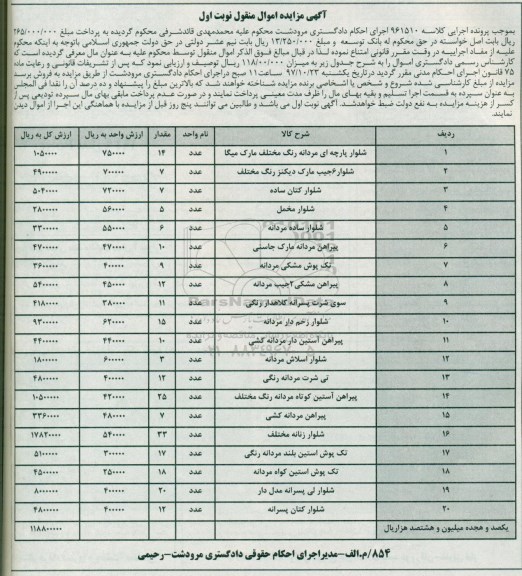 آگهی مزایده اموال منقول نوبت اول
بموجب پرونده اجرایی کلاسه ۹۶۱۵۱۰ اجرای احکام دادگستری مرودشت محکوم علیه محمدمهدی قائدشرفی محکوم گردیده به پرداخت مبلغ ۲۶۵/۰۰۰/۰۰۰
ریال بابت اصل خواسته در حق محکوم له بانک توسعه و مبلغ ۱۳/۲۵۰/۰۰۰ ریال بابت نیم عشر دولتی در حق دولت جمهوری اسلامی باتوجه به اینکه محکوم
علیه از مفاد اجراییه در وقت مقرر قانونی امتناع نموده لذا در قبال مبالغ فوق الذکر اموال منقول توسط محکوم علیه به عنوان مال معرفی گردیده است که
کارشناس رسمی دادگستری اموال را به شرح جدول زیر به میزان ۱۱۸/۰۰/۰۰۰ ریال توصیف و ارزیابی نمود که پس از تشریفات قانونی و رعایت ماده
۷۵ قانون اجرای احکام مدنی مقرر گردید درتاریخ یکشنبه ۹۷/۱۰/۲۳ ساعت ۱۱ صبح دراجرای احکام دادگستری مرودشت از طریق مزایده به فروش برسد
مزایده از مبلغ کارشناسی شده شروع و شخص یا اشخاص برنده مزایده شناخته خواهند شد که بالاترین مبلغ را پیشنهاد و ده درصد آن را نقدا فی المجلس
به عنوان سپرده به قسمت اجرا تسلیم و بقیه بهای مال را ظرف مدت معینی پرداخت نمایند و در صورت عدم پرداخت مابقی بهای مال سپرده تودیعی پس از
کسر از هزینه مزایده به نفع دولت ضبط خواهدشد. آگهی نوبت اول می باشد و طالبین می توانند پنج روز قبل از مزایده با هماهنگی این اجرا از اموال دیدن
نمایند.
ردیف شرح کالا نام واحد مقدار ارزش واحد به ریال ارزش کل به ریال
۱ شلوار پارچه ای مردانه رنگ مختلف مارک میگا عدد ۱۴ ۷۵۰۰۰۰ ۱۰۵۰۰۰۰
۲ شلوار۶جیب مارک دیکنز رنگ مختلف عدد ۷ ۷۰۰۰۰۰ ۴۹۰۰۰۰۰
۳ شلوار کتان ساده عدد ۷ ۷۲۰۰۰۰ ۵۰۴۰۰۰۰
۴ شلوار مخمل عدد ۵ ۵۶۰۰۰۰ ۲۸۰۰۰۰۰
۵ شلوار ساده مردانه عدد ۶ ۵۵۰۰۰۰ ۳۳۰۰۰۰۰
۶ پیراهن مردانه مارک جاستی عدد ۱۰ ۴۷۰۰۰۰ ۴۷۰۰۰۰۰
۷ تک پوش مشکی مردانه عدد ۹ ۴۰۰۰۰۰ ۳۶۰۰۰۰۰
۸ پیراهن مشکی۲جیب مردانه عدد ۱۲ ۴۵۰۰۰۰ ۵۴۰۰۰۰۰
۹ سوی شرت پسرانه کلاهدار رنگی عدد ۱۱ ۳۸۰۰۰۰ ۴۱۸۰۰۰۰
۱۰ شلوار زخم دار مردانه عدد ۱۵ ۶۲۰۰۰۰ ۹۳۰۰۰۰۰
۱۱ پیراهن آستین دار مردانه کشی عدد ۱۰ ۴۴۰۰۰۰ ۴۴۰۰۰۰۰
۱۲ شلوار اسلاش مردانه عدد ۳ ۶۰۰۰۰۰ ۱۸۰۰۰۰۰
۱۳ تی شرت مردانه رنگی عدد ۱۲ ۴۰۰۰۰۰ ۴۸۰۰۰۰۰
۱۴ پیراهن آستین کوتاه مردانه رنگ مختلف عدد ۲۵ ۴۲۰۰۰۰ ۱۰۵۰۰۰۰۰
۱۵ پیراهن مردانه کشی عدد ۷ ۴۸۰۰۰۰ ۳۳۶۰۰۰۰
۱۶ شلوار زنانه مختلف عدد ۳۳ ۵۴۰۰۰۰ ۱۷۸۲۰۰۰۰
۱۷ تک پوش استین بلند مردانه رنگی عدد ۱۷ ۳۰۰۰۰۰ ۵۱۰۰۰۰۰
۱۸ تک پوش استین کواه مردانه عدد ۱۸ ۲۵۰۰۰۰ ۴۵۰۰۰۰۰
۱۹ شلوار لی پسرانه مدل دار عدد ۲۰ ۴۰۰۰۰۰ ۸۰۰۰۰۰۰
۲۰ شلوار کتان پسرانه عدد ۱۲ ۴۰۰۰۰۰ ۴۸۰۰۰۰۰
یکصد و هجده میلیون و هشتصد هزارریال ۱۱۸۸۰۰۰۰۰
۸۵۴/م.الف-مدیراجرای احکام حقوقی دادگستری مرودشت-رحیمی